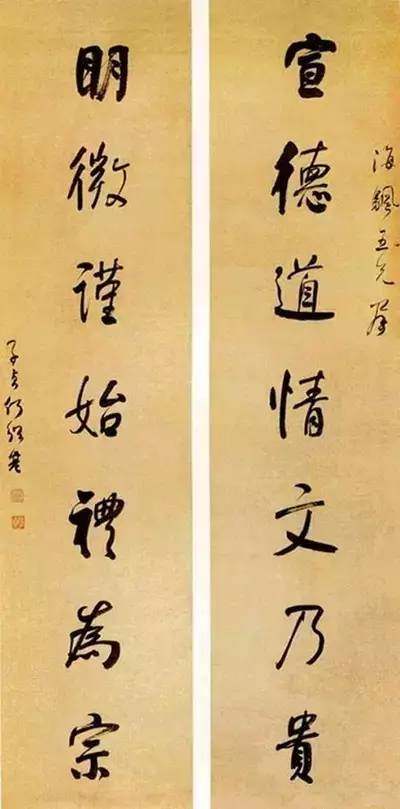 海五兄
宣德道情文乃貴
明微謹始禮為宗
子貞何紹基